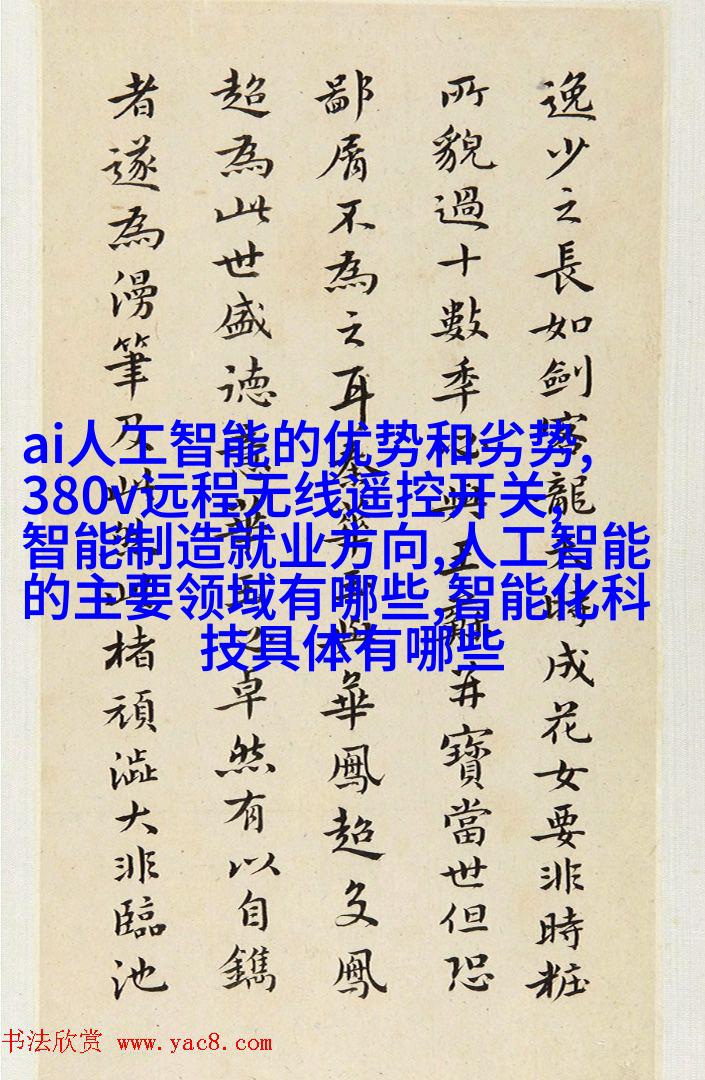 逸少之長如劍客龍時成花女要非時粧
所貌過十數季與王并寶當世但恐
鄙屑不為之耳與華鳳超文鳳
超為此世盛德華之卓然有以自鐫
者遂為漫筆及此楮頑澁大非臨池
ai人工智能的优势和劣势,
380v远程无线遥控开关,
智能制造就业方向,人工智能
的主要领域有哪些,智能化科
技具体有哪些
书法欣赏 www.yac8.com